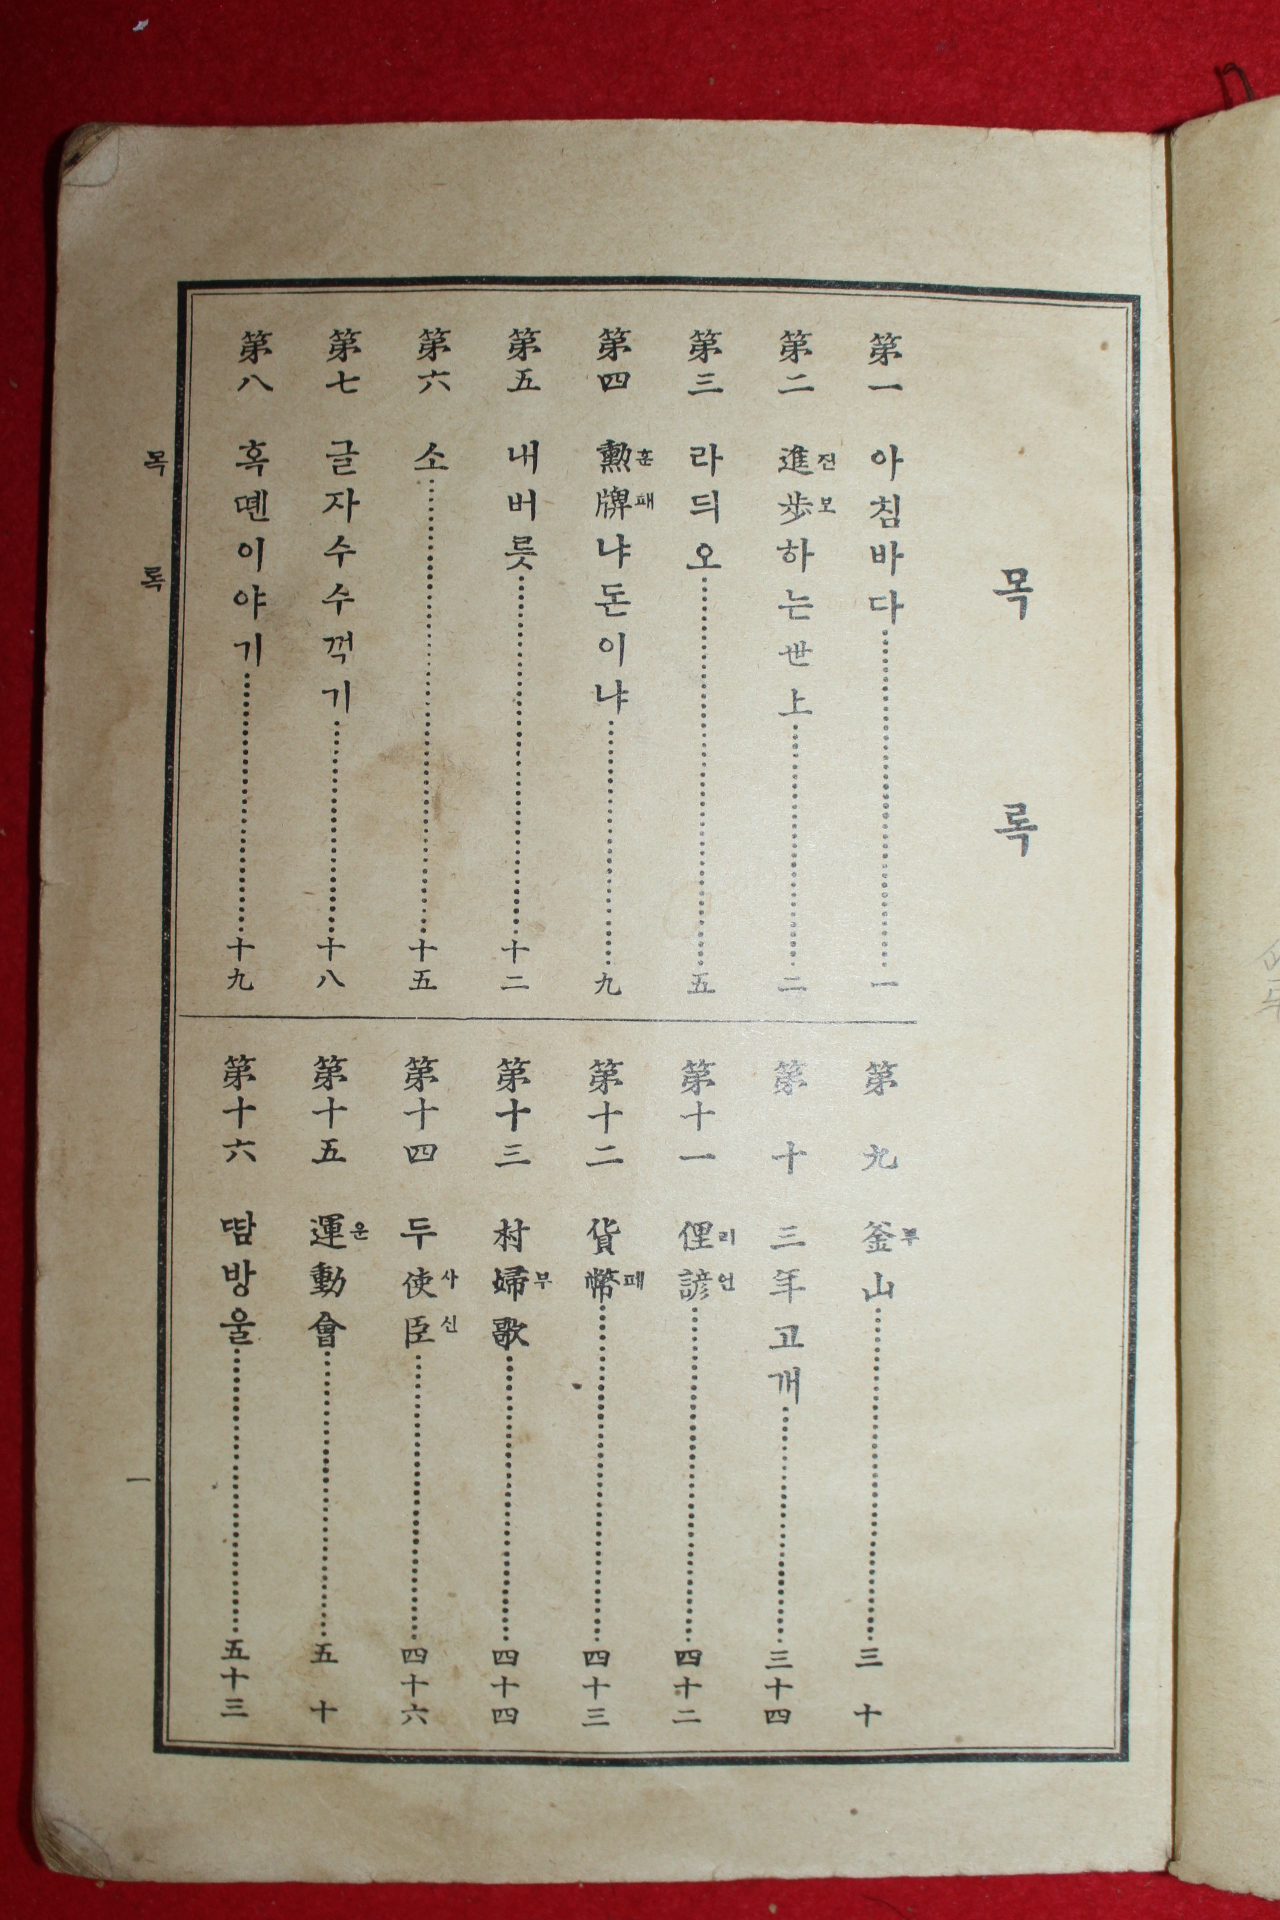 목록
第一 아침바다 一
第二 進步하는世上 二
진보
第三 라듸오 五
第四 勳牌냐돈이냐 九
훈패
第五 내버릇 十二
第六 소 十五
第七 글자수수꺽기 十八
第八 혹뗀이야기 十九
第九 釜山 三十
부
第十 三年고개 三十四
第十一 俚諺 四十二
리언
第十二 貨幣 四十三
폐
第十三 村婦歌 四十四
부
第十四 두使臣 四十六
사신
第十五 運動會 五十
운
第十六 땀방울 五十三
목록
一